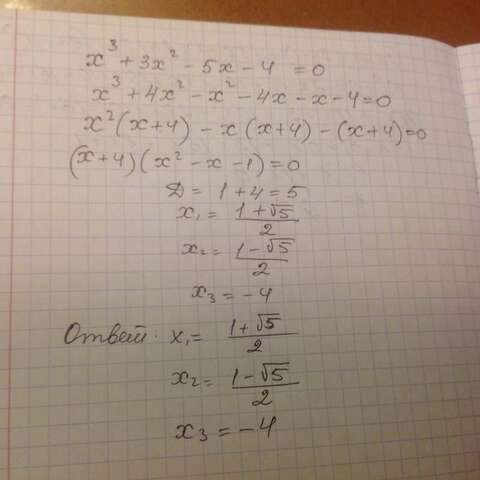 x³ + 3x² - 5x - 4 = 0
x³ + 4x² - x² - 4x - x - 4 = 0
x²(x+4) - x(x+4) - (x+4) = 0
(x+4)(x² - x - 1) = 0
D = 1 + 4 = 5
x₁ = (1+√5)/2
x₂ = (1-√5)/2
x₃ = -4
Ответ: x₁ = (1+√5)/2
x₂ = (1-√5)/2
x₃ = -4